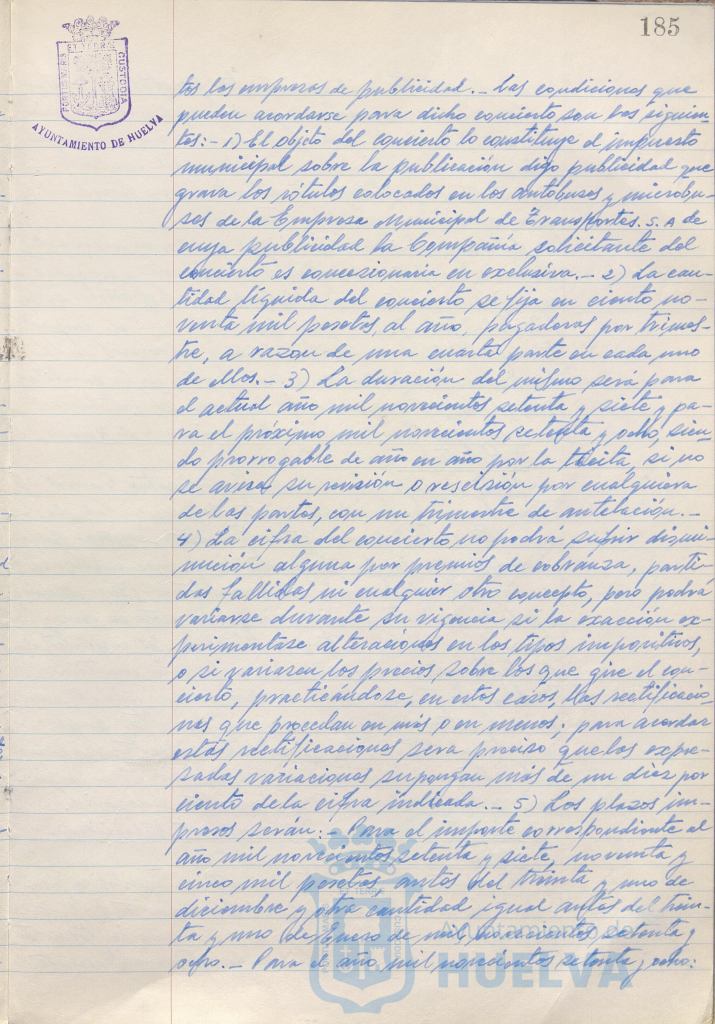 185
PORTUS MARIS ET TERRE CUSTODIA
AYUNTAMIENTO DE HUELVA
tos las empresas de publicidad.- Las condiciones que
pueden acordarse para dicho concierto son las siguien-
tes:- 1) El objeto del concierto lo constituye el impuesto
municipal sobre la publicación digo publicidad que
grava los rótulos colocados en los autobuses y microbu-
ses de la Empresa Municipal de Transportes. S.A de
cuya publicidad la Compañía solicitante del
concierto es concesionaria en exclusiva.- 2) La can-
tidad líquida del concierto se fija en ciento no-
venta mil pesetas, al año, pagaderas por trimes-
tre, a razón de una cuarta parte en cada uno
de ellos.- 3) La duración del mismo será para
el actual año mil novecientos setenta y siete y pa-
ra el próximo mil novecientos setenta y ocho, sien-
do prorrogable de año en año por la tácita, si no
se avisa su revisión o rescisión por cualquiera
de las partes, con un trimestre de antelación.-
4) La cifra del concierto no podrá sufrir dismi-
nución alguna por premios de cobranza, parti-
das fallidas ni cualquier otro concepto, pero podrá
variarse durante su vigencia si la exacción ex-
perimentase alteraciones en los tipos impositivos,
o si variasen los precios sobre los que gire el con-
cierto, practicándose, en estos casos, las rectificacio-
nes que procedan en más o en menos; para acordar
estas rectificaciones será preciso que las expre-
sadas variaciones supongan más de un diez por
ciento de la cifra indicada.- 5) Los plazos im-
presos serán:- Para el importe correspondiente al
año mil novecientos setenta y siete, noventa y
cinco mil pesetas antes del treinta y uno de
diciembre y otra cantidad igual antes del trein-
ta y uno de Enero de mil novecientos setenta y
ocho.- Para el año mil novecientos setenta y ocho:
Ayuntamiento de
HUELVA